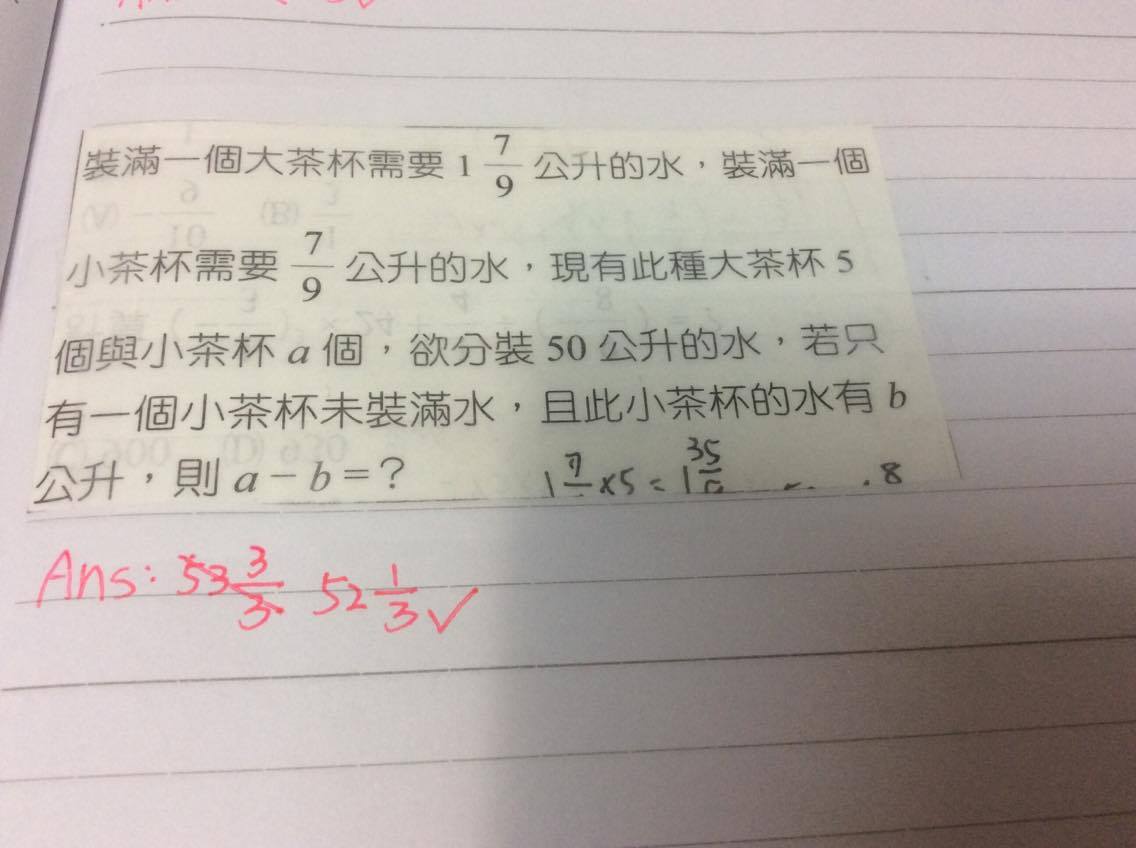 裝滿一個大茶杯需要 1 7/9 公升的水，裝滿一個
小茶杯需要 7/9 公升的水，現有此種大茶杯 5
個與小茶杯 a 個，欲分裝 50 公升的水，若只
有一個小茶杯未裝滿水，且此小茶杯的水有 b
公升，則 a － b ＝？
Ans: 53 3/3 52 1/3 ✓